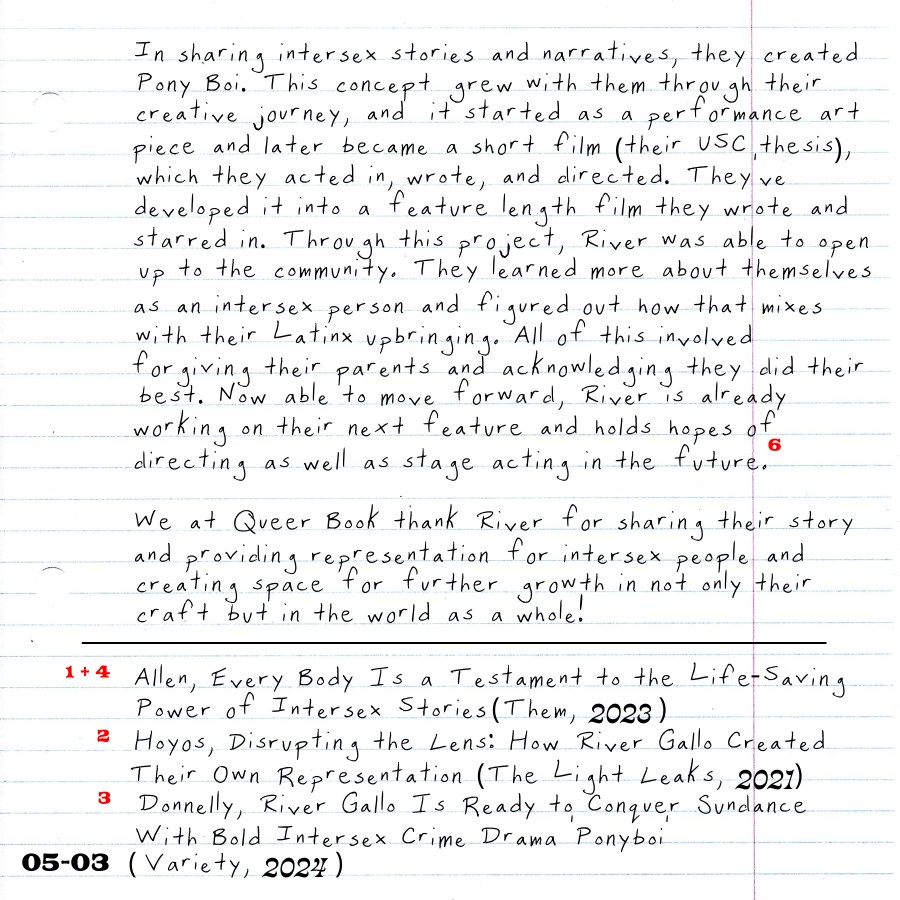 In sharing intersex stories and narratives, they created
Pony Boi. This concept grew with them through their
creative journey, and it started as a performance art
piece and later became a short film (their USC thesis),
which they acted in, wrote, and directed. They've
developed it into a feature length film they wrote and
starred in. Through this project, River was able to open
up to the community. They learned more about themselves
as an intersex person and figured out how that mixes
with their Latinx upbringing. All of this involved
forgiving their parents and acknowledging they did their
best. Now able to move forward, River is already
working on their next feature and holds hopes of
directing as well as stage acting in the future. 6
We at Queer Book thank River for sharing their story
and providing representation for intersex people and
creating space for further growth in not only their
craft but in the world as a whole!
1 + 4 Allen, Every Body Is a Testament to the Life-Saving
Power of Intersex Stories (Them, 2023)
2 Hoyos, Disrupting the Lens: How River Gallo Created
Their Own Representation (The Light Leaks, 2021)
3 Donnelly, River Gallo Is Ready to Conquer Sundance
With Bold Intersex Crime Drama Ponyboi
05-03 (Variety, 2024)